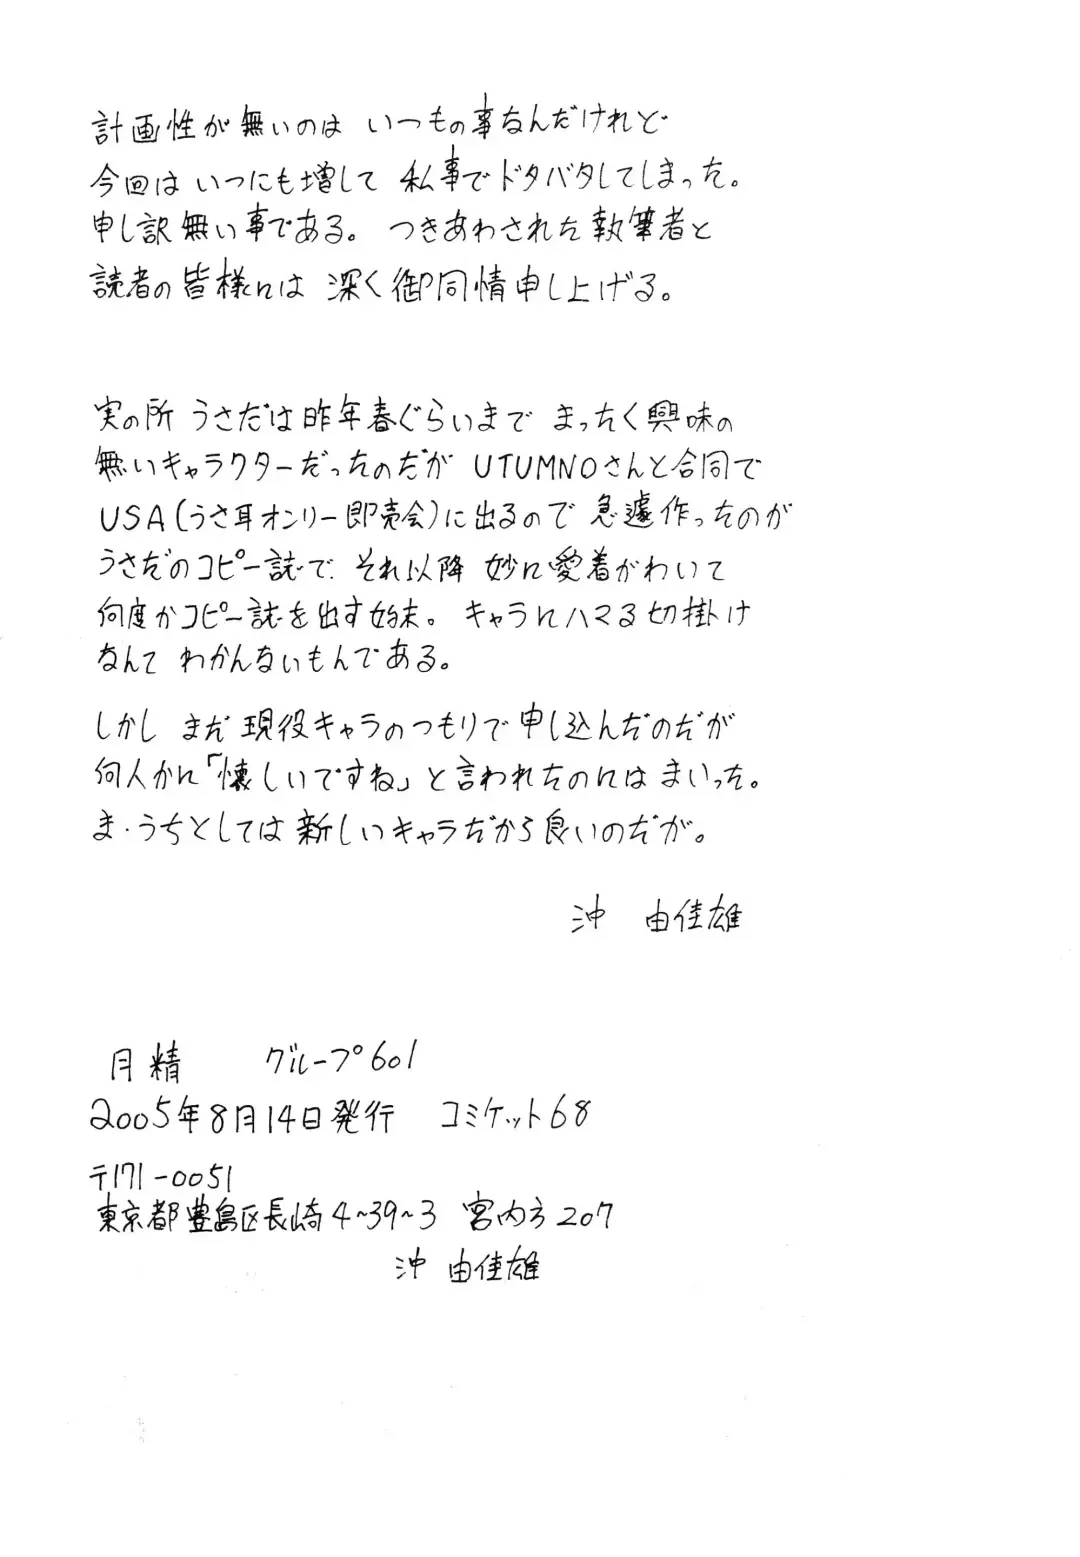 計画性が無いのは いつもの事なんだけれど
今回は いつにも増して 私事でドタバタしてしまった。
申し訳無い事である。 つきあわされた執筆者と
読者の皆様には 深く御同情申し上げる。
実の所 うさだは昨年春ぐらいまで まったく興味の
無いキャラクターだったのだが UTUMNOさんと合同で
USA(うさ耳オンリー即売会)に出るので 急遽作ったのが
うさだのコピー誌で、それ以降 妙に愛着がわいて
何度かコピー誌を出す始末。 キャラにハマる切掛け
なんて わかんないもんである。
しかし まだ 現役キャラのつもりで 申し込んだのだが
何人かに「懐しいですね」と言われたのにはまいった。
ま・うちとしては新しいキャラだから良いのだが。
沖 由佳雄
月精 グループ601
2005年8月14日発行 コミケット68
〒171-0051
東京都豊島区長崎4~39~3 宮内方207
沖 由佳雄